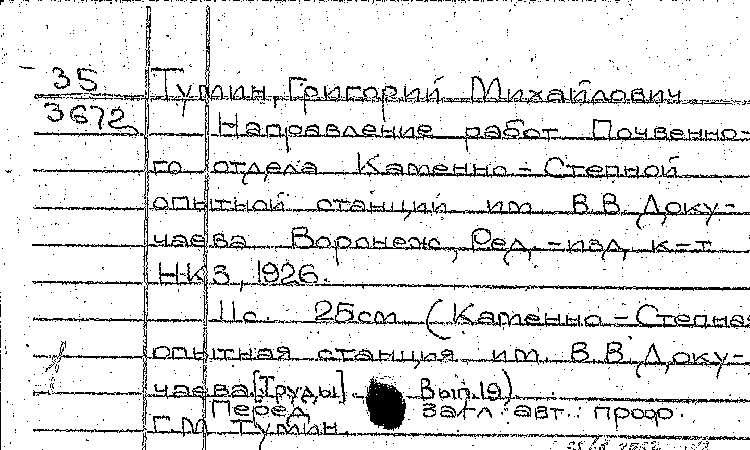 35
3672
Тумин, Григорий Михайлович
Направление работ Почвенно-
го отдела Каменно-Степной
опытной станции им. В.В. Доку-
чаева Воронеж, Ред.-изд. к-т
НКЗ, 1926.
11с. 25см (Каменно-Степная
опытная станция им. В.В. Доку-
чаева [Труды]. Вып. 19)
Перед загл. авт.: проф.
Г.М. Тумин.